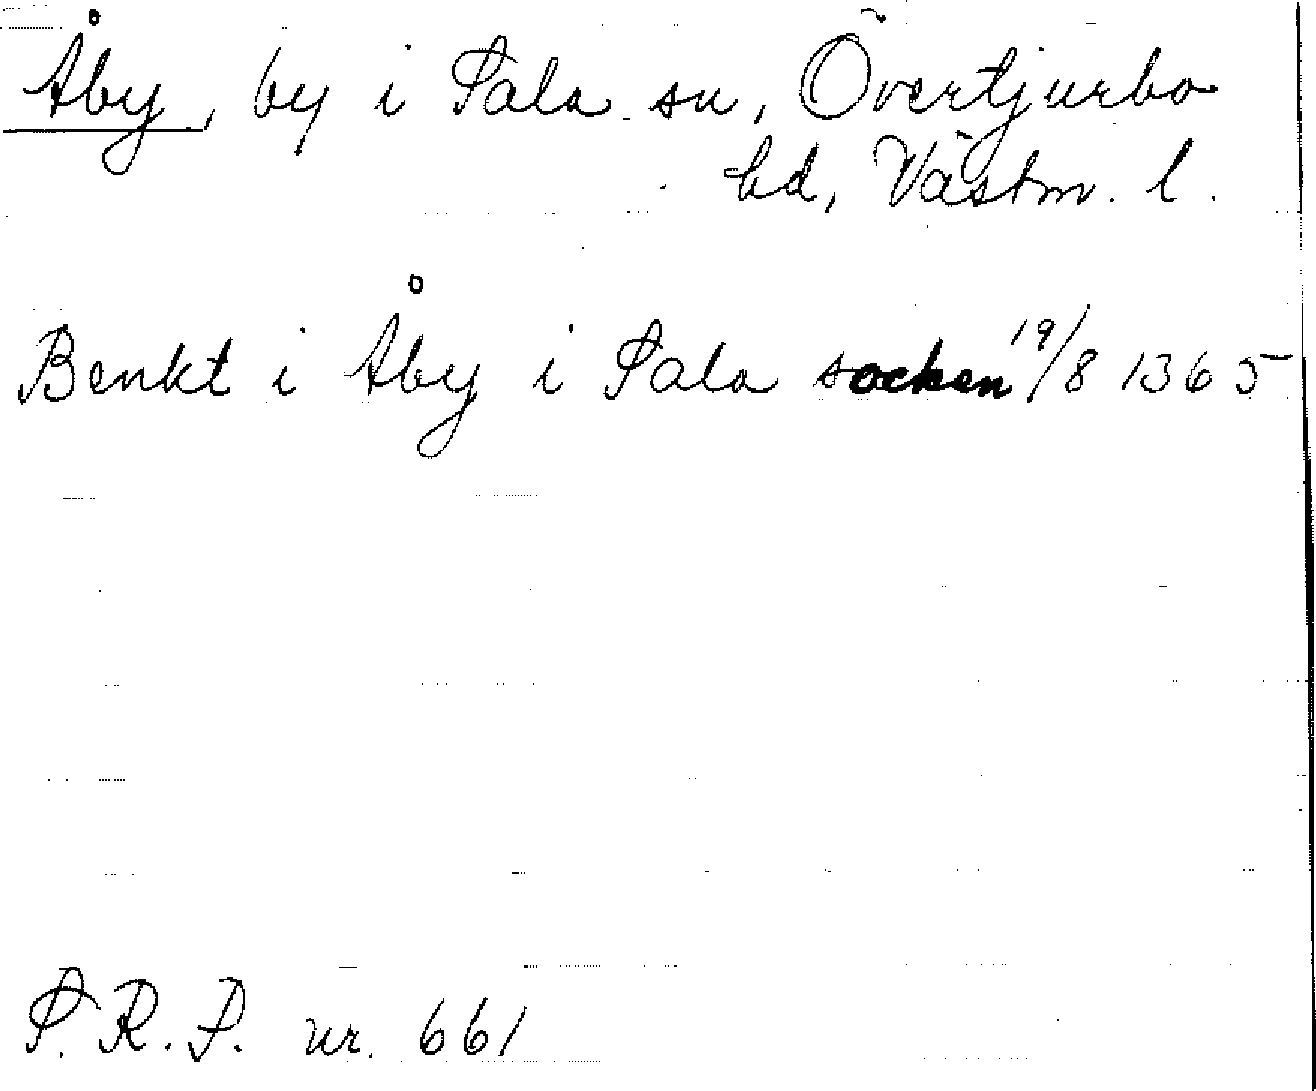 Åby, by i Sala sn, Övertjurbo
hd, Västm. l.
Benkt i Åby i Sala socken 19/8 1365
S. R. P. nr. 661